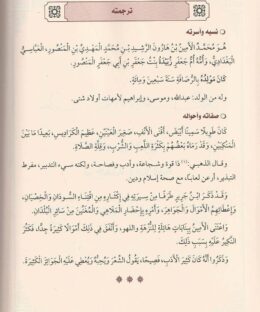 ترجمته
نسبه وأسرته
هُوَ مُحَمَّدٌ الأَمِينُ بْنُ هَارُونَ الرَّشِيدِ بْنِ مُحَمَّدٍ المَهْدِيِّ بْنِ المَنْصُورِ، العَبَّاسِيُّ
البَغْدَادِيُّ، وَأُمُّهُ أُمُّ جَعْفَرٍ زُبَيْدَةُ بِنْتُ جَعْفَرِ بْنِ أَبِي جَعْفَرٍ المَنْصُورِ.
كَانَ مَوْلِدُهُ بِالرُّصَافَةِ سَنَةَ سَبْعِينَ وَمِائَةٍ.
وله من الولد: عبدالله، وموسى، وإبراهيم لأمهات أولاد شتى.
صفاته وأحواله
كَانَ طَوِيلًا سَمِينًا أَبْيَضَ، أَقْنَى الأَنْفِ، صَغِيرَ العَيْنَيْنِ، عَظِيمَ الكَرَادِيسِ، بَعِيدًا مَا بَيْنَ
المَنْكِبَيْنِ، وَقَدْ رَمَاهُ بَعْضُهُمْ بِكَثْرَةِ اللَّعِبِ وَالشُّرْبِ، وَقِلَّةِ الصَّلَاةِ.
وقال الذهبي: ذا قوة وشجاعة، وأدب وفصاحة، ولكنه سيء التدبير، مفرط
التبذير، أرعن لعابًا، مع صحة إسلام ودين.
وَقَدْ ذَكَرَ ابْنُ جَرِيرٍ طَرَفًا مِنْ سِيرَتِهِ فِي إِكْثَارِهِ مِنِ اقْتِنَاءِ السُّودَانِ وَالخِصْيَانِ،
وَإِعْطَائِهِمُ الأَمْوَالَ وَالجَوَاهِرَ، وَأَمْرِهِ بِإِحْضَارِ المَلَاهِي وَالمُغَنِّينَ مِنْ سَائِرِ البُلْدَانِ.
وَاعْتَنَى الأَمِينُ بِبِنَايَاتٍ هَائِلَةٍ لِلنُّزْهَةِ وَاللَّهْوِ، وَأَنْفَقَ فِي ذَلِكَ أَمْوَالًا كَثِيرَةً جِدًّا، فَكَثُرَ
النَّكِيرُ عَلَيْهِ بِسَبَبِ ذَلِكَ.
وَذَكَرُوا أَنَّهُ كَانَ كَثِيرَ الأَدَبِ، فَصِيحًا، يَقُولُ الشِّعْرَ وَيُحِبُّهُ وَيُعْطِي عَلَيْهِ الجَوَائِزَ الكَثِيرَةَ.